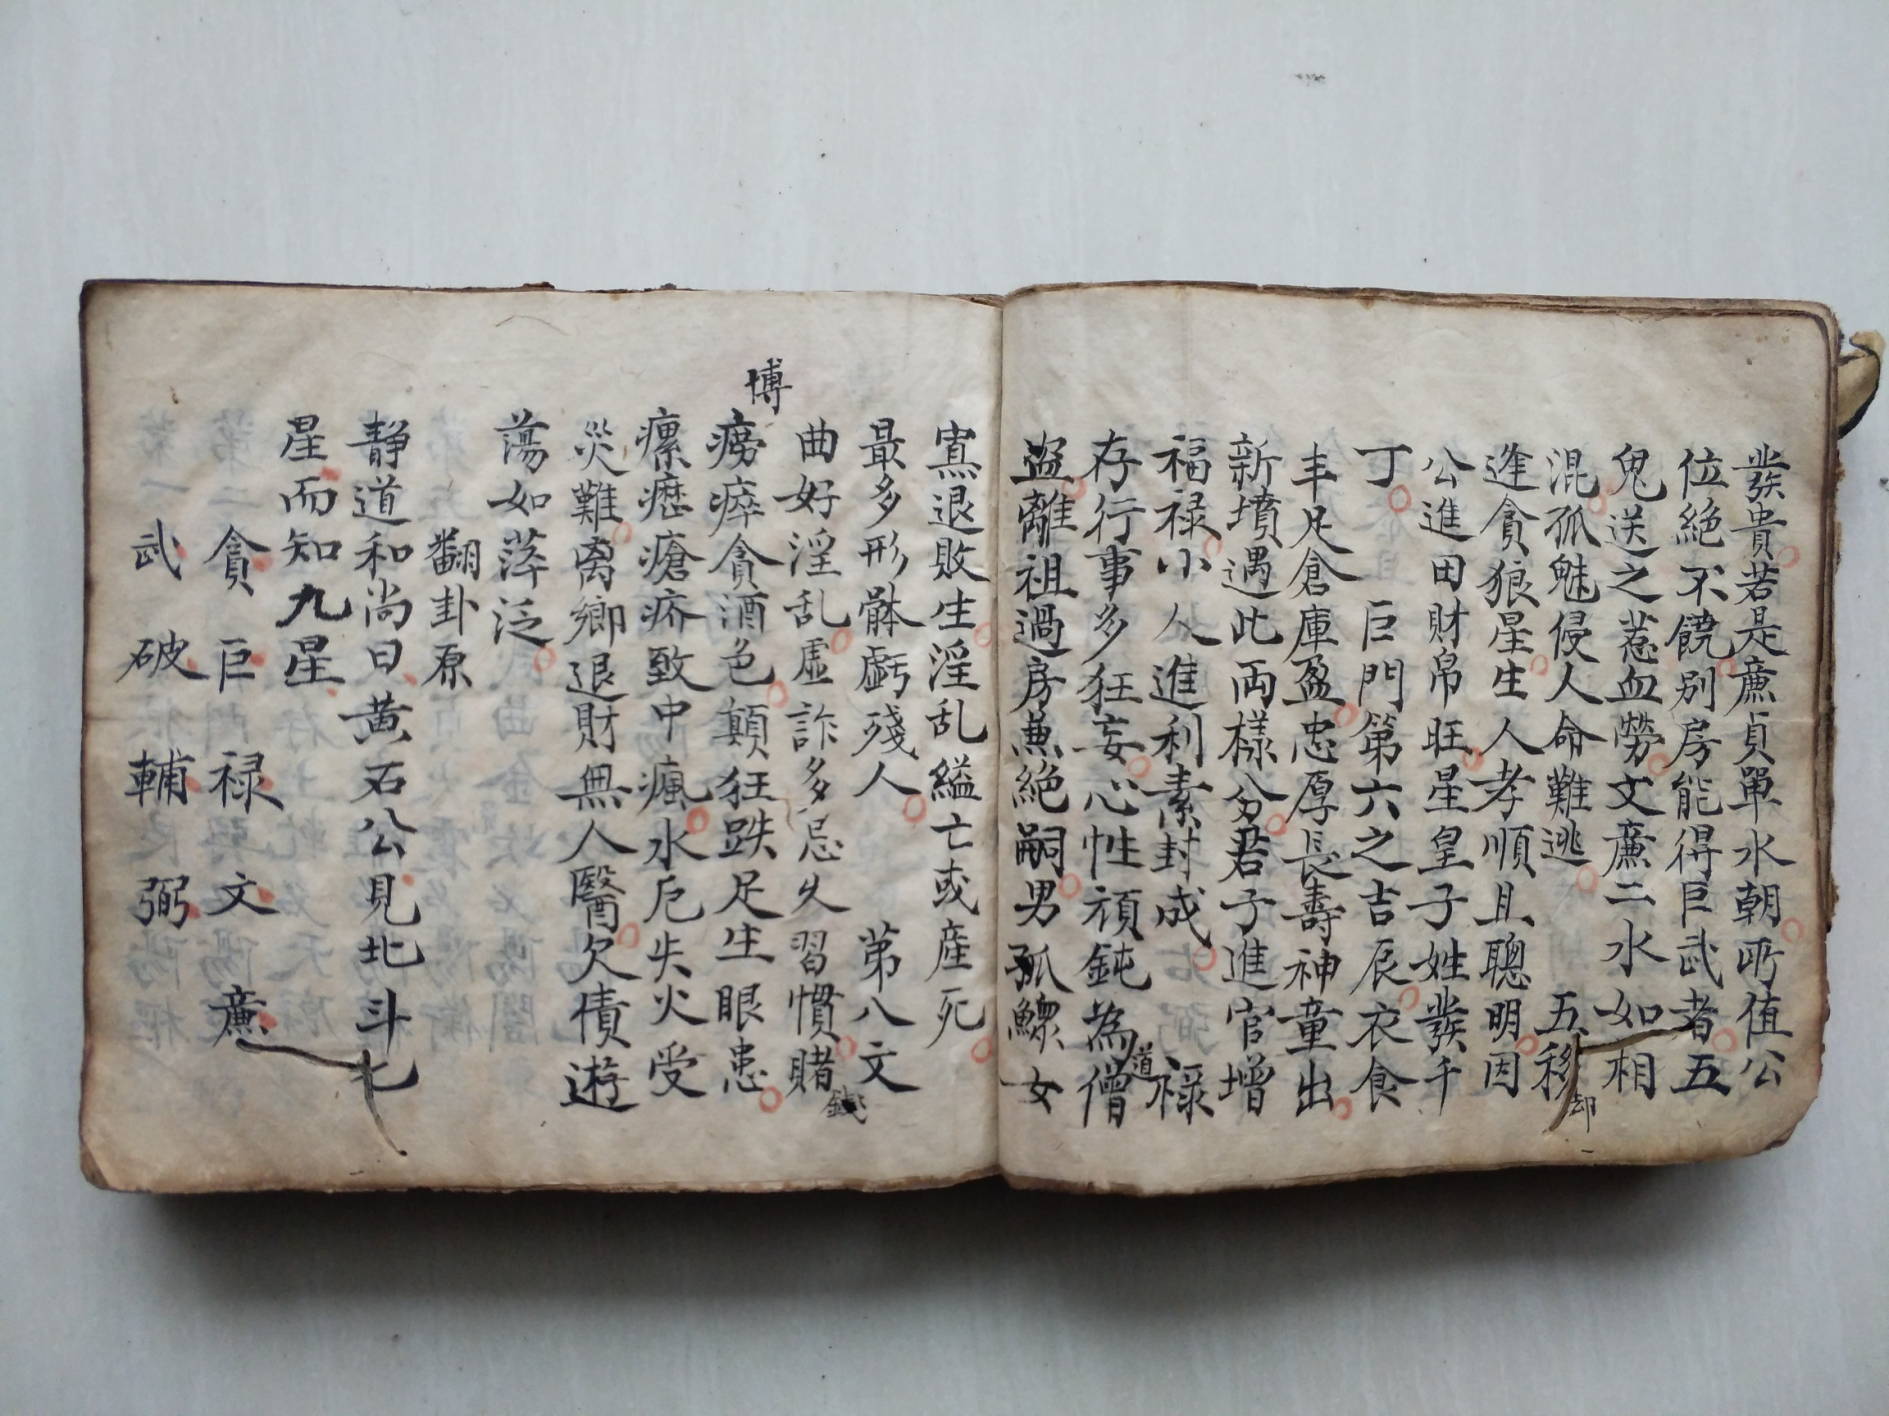 發貴若是廉貞單水朝所值公
位絕不饒別房能得巨武者五
鬼送之惹血勞文廉二水如相
混孤魅侵人命難逃 五移
却
逢貪狼星生人孝順且聰明因
公進田財帛旺星皇子姓發千
丁 巨門第六之吉辰衣食
丰足倉庫盈忠厚長壽神童出
新墳遇此両樣分君子進官增
福禄小人進利素封成 禄
道
存行事多狂妄心性頑鈍為僧
盗離祖過房兼絕嗣男孤鰥女
寡退敗生淫乱縊亡或產死
最多形骵虧殘人 第八文
曲好淫乱虚詐多忌久習慣賭
錢
博
癆瘁貪酒色顛狂跌足生眼患
瘰癧瘡疥致中瘋水厄失火受
災難离鄉退財無人醫欠債遊
蕩如萍泛
翻卦原
静道和尚曰黃石公見北斗七
星而知九星
貪 巨 禄 文 廉
武 破 輔 弼